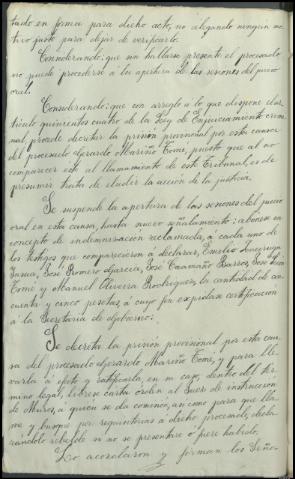 tado en forma para dicho acto, no alegando ningún mo
tivo justo para dejar de verificarlo.
Considerando: que sin hallarse presente el procesado
no puede procederse a la apertura de las sesiones del juicio
oral.
Considerando: que con arreglo a lo que dispone el ar
tículo quinientos cuatro de la Ley de Enjuiciamiento crimi
nal, procede decretar la prisión provisional por esta causa
del procesado Gerardo Mariño Tomé, puesto que al no
comparecer este al llamamiento de este Tribunal, es de
presumir trata de eludir la acción de la justicia.
Se suspende la apertura de las sesiones del juicio
oral en esta causa, hasta nuevo señalamiento: abónese en
concepto de indemnización reclamada, a cada uno de
los testigos que comparecieron a declarar, Emilio
Insua, José Romero García, José Caamaño Barros, José
Tomé y Manuel Oliveira Rodríguez, la cantidad de
cuenta y cinco pesetas, a cuyo fin expídase certificación
a la Secretaría de Gobierno:
Se decreta la prisión provisional por esta cau
sa del procesado Gerardo Mariño Tomé, y para lle
varla a efecto y ratificarla, en su caso, dentro del tér
mino legal, líbrese carta orden al Juez de instrucción
de Muros, a quien se da comisión, así como para que lla
me y busque por requisitorias a dicho procesado, decla
rándole rebelde si no se presentare o fuere habido.
Lo acordaron y firman los Seño